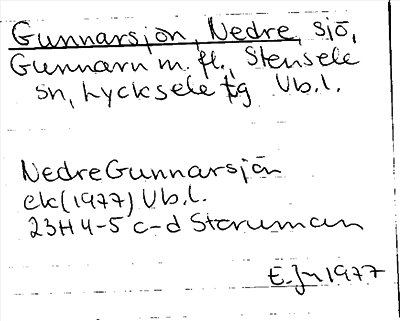 Gunnarsjön, Nedre, sjö,
Gunnarn m. fl., Stensele
sn, Lycksele tg Vb.l.
Nedre Gunnarsjön
ek (1977) Vb.l.
23H 4-5 c-d Storuman
E. Jn 1977